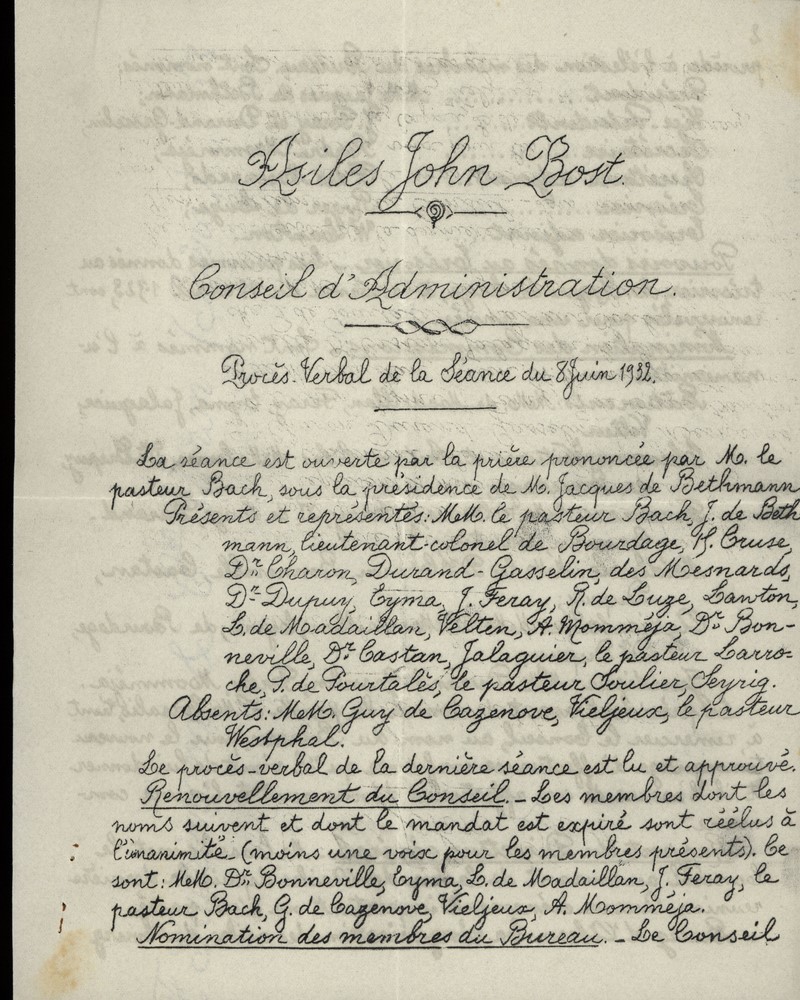 Asiles John Bost.
Conseil d'Administration.
Procès-Verbal de la Séance du 8 Juin 1932.
La séance est ouverte par la prière prononcée par M. le
pasteur Bach, sous la présidence de M. Jacques de Bethmann
Présents et représentés: MM. le pasteur Bach, J. de Beth
mann, lieutenant-colonel de Bourdage, H. Cruse,
Dr Charon, Durand-Gasselin, des Mesnards,
Dr Dupuy, Eyma, J. Feray, R. de Luze, Lawton,
L. de Madaillan, Velten, A. Momméja, Dr Bon-
neville, Dr Castan, Jalaguier, le pasteur Larro-
che, P. de Pourtalès, le pasteur Soulier, Seyrig.
Absents: MM. Guy de Cazenove, Vieljeux, le pasteur
Westphal.
Le procès-verbal de la dernière séance est lu et approuvé.
Renouvellement du Conseil. - Les membres dont les
noms suivent et dont le mandat est expiré sont réélus à
l'unanimité (moins une voix pour les membres présents). Ce
sont: MM. Dr Bonneville, Eyma, L. de Madaillan, J. Feray, le
pasteur Bach, G. de Cazenove, Vieljeux, A. Momméja.
Nomination des membres du Bureau. - Le Conseil